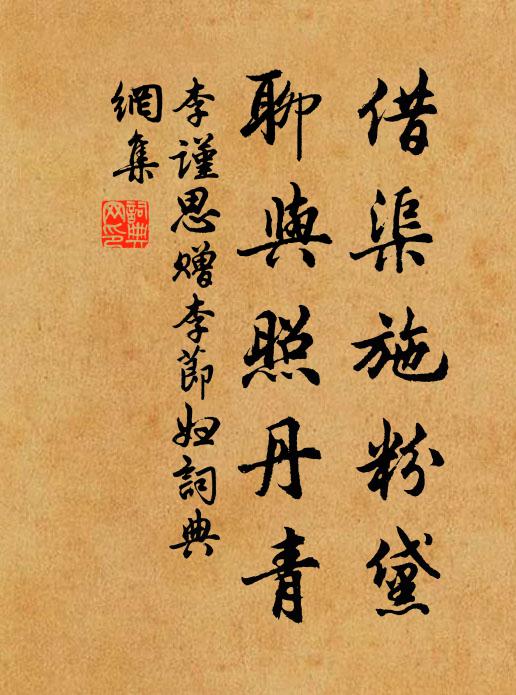 借渠施粉黛
聊與照丹青
李謹思贈李節婦詞典
網集
詞典网印